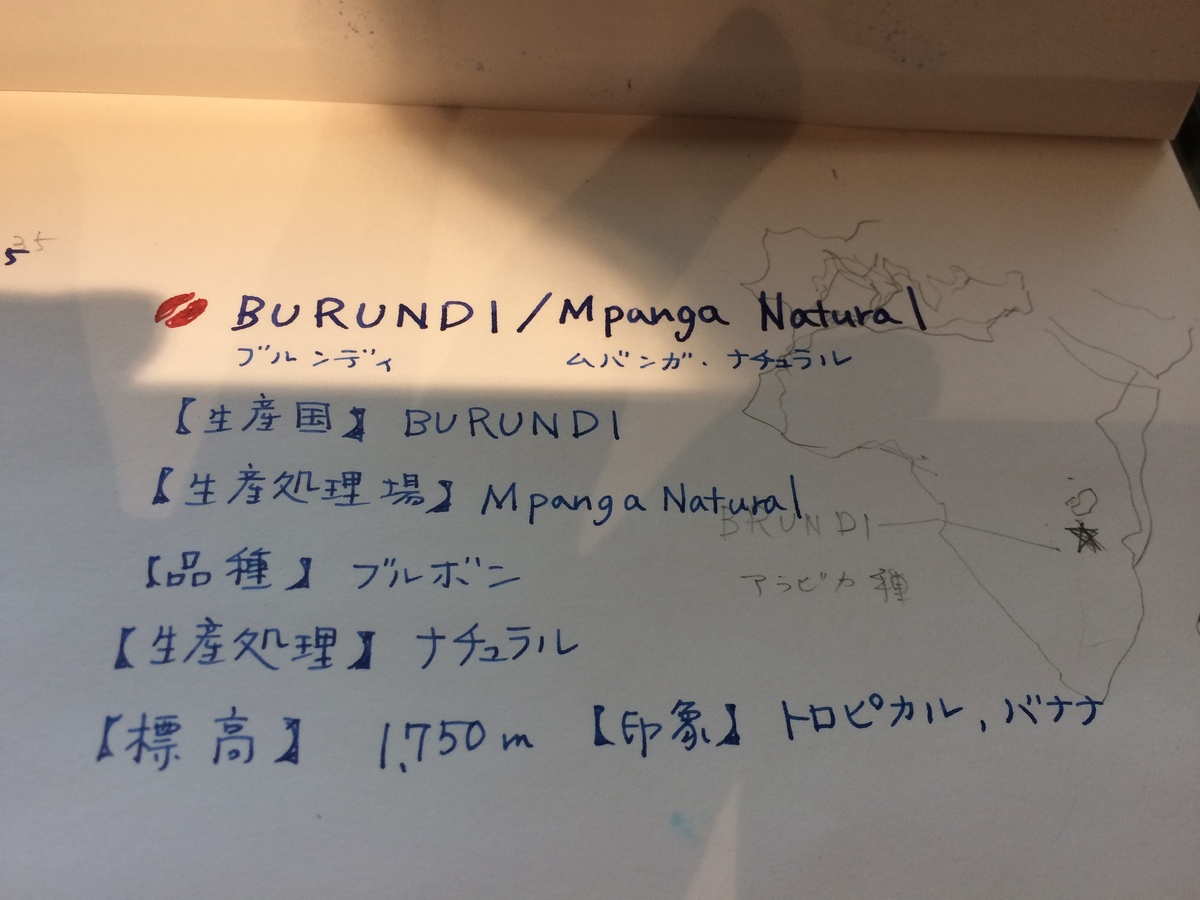 35
5
BURUNDI/Mpanga Natural
ブルンディ ムバンガ・ナチュラル
【生産国】 BURUNDI
【生産処理場】 Mpanga Natural
BRUNDI
【品種】 ブルボン
アラビカ種
【生産処理】 ナチュラル
【標高】 1,750m 【印象】 トロピカル, バナナ